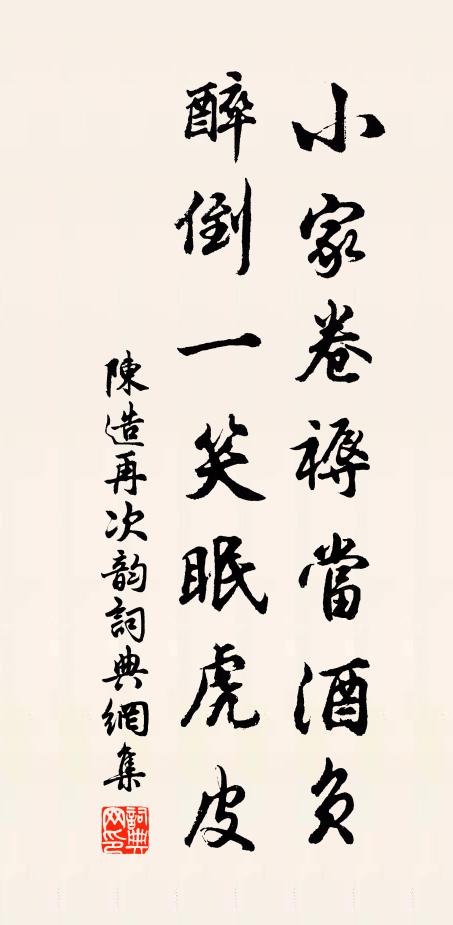 小家卷褥當酒負
醉倒一笑眠虎皮
陳造再次韵詞典網集
詞典網印